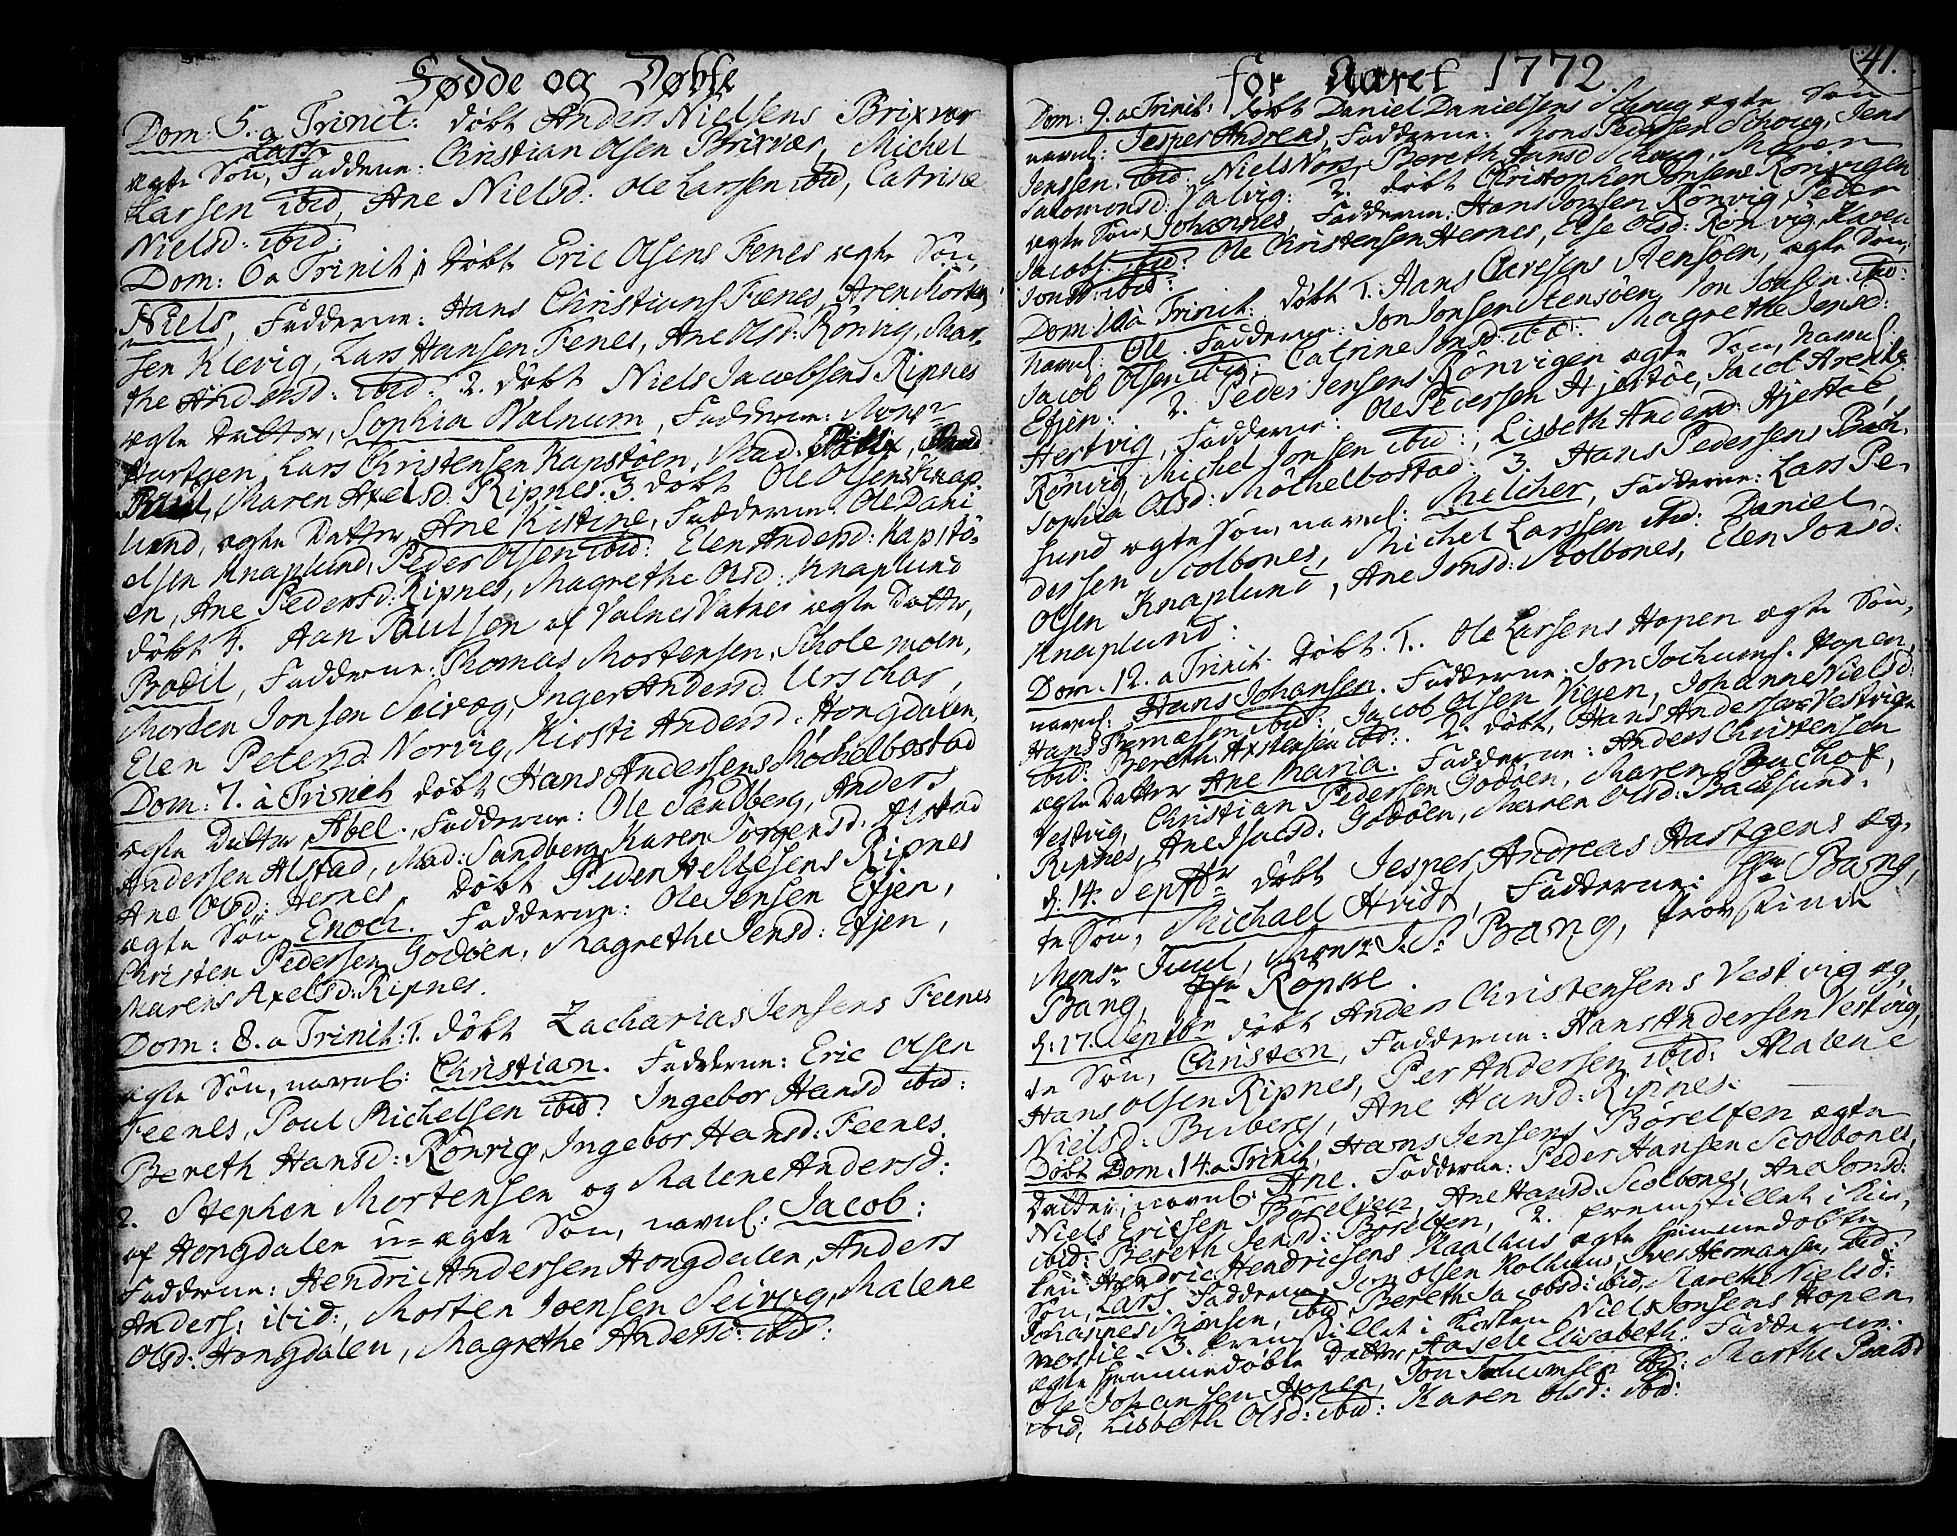 Fødde og Døbte
Dom: 5. a Trinit: døbt Anders Nielsens Brixvær
ægte Søn, Lars, Fadderne: Christian Olsen Brixvær, Michel
Larsen ibid, Ane Nielsd: Ole Larsen ibid, Catrine
Nielsd: ibid:
Dom: 6 a Trinit: døbt Eric Olsens Fenes ægte Søn,
Niels, Fadderne: Hans Christians Fenes, Aren Morten
sen Klevig, Lars Hansen Fenes, Ane Olsd: Rönvig, Mar-
the Andersd: ibid: 2. døbt Niels Jacobsens Ripnes
ægte Datter, Sophia Walnum, Fadderne: Monsr
Hartgen, Lars Christensen Kapstøen, Mad:
Maren Axelsd: Ripnes. 3. døbt Ole Olsens Knap
lund, ægte Datter, Ane Kistine, Fadderne: Ole Dani
elsen Knaplund, Peder Olsen ibid: Elen Andersd: Kapstö-
en, Ane Pedersd: Ripnes, Magrethe Olsd: Knaplund
døbt 4. Aan Paulsen af Valnes Vatnes ægte Datter,
Bodil, Fadderne: Thomas Mortensen, Skolemoen,
Morten Jonsen Seivaag, Inger Andersd. Urschar,
Elen Petersd Norvig, Kirsti Andersd: Hongdalen,
Dom: 7. a Trinit døbt Hans Andersens Möchelbostad
ægte Datter, Abel, Fadderne: Ole Sandberg, Anders
Andersen Alstad, Mad: Sandberg, Karen Jörgensd: Alstad
Ane Olsd: Hernes. Døbt Peder Hellesens Ripnes
ægte Søn Enoch. Fadderne: Ole Jensen Efjen,
Christen Pedersen Godöen, Magrethe Jensd: Efjen,
Marens Axelsd: Ripnes.
Dom: 8. a Trinit: 1. døbt Zacharias Jensens Feenes
ægte Søn, navnl: Christian. Fadderne: Eric Olsen
Feenes, Poul Michelsen ibid: Ingebor Hansd ibid:
Bereth Hansd: Rönvig, Ingebor Hansd: Feenes.
2. Stephen Mortensen og Malene Andersd:
af Hongdalen u=ægte Søn, navnl: Jacob:
Fadderne: Hendric Andersen Hongdalen, Anders
Anders: ibid:, Morten Joensen Seivog, Malene
Olsd: Hongdalen, Magrethe Andersd: ibid:
for Aaret 1772
41.
Dom: 9. a Trinit: døbt Daniel Danielsens Schoug ægte Søn
navnl: Jesper Andreas, Fadderne: Mons Pedersen Schoug, Jens
Jenssen ibid: Niels Nors, Bereth Hansd Schoug, Maren
Salomonsd: Valvig: 2. døbt Christopher Jonsens Rönvigen
ægte Søn, Johannes, Fadderne: Hans Jonsen Rönvig, Peder
Jacobs: ibid: Ole Christensen Hernes, Else Olsd: Rönvig, Karen
Jonsd: ibid:
Dom: 10 a Trinit: døbt 1. Hans Claresens Stensöen, ægte Søn,
navnl: Ole. Fadderne: Jon Jonsen Stensöen, Jon Jonsen ibid:
Jacob Olsen ibid: Catrine Jonsd: ibid: Magrethe Jensd:
Efjen: 2. Peder Jensens Rönvigen ægte Søn, navnl:
Hertvig, Fadderne: Ole Pedersen Hjertöe, Jacob Arentz
Rönvig, Michel Jonsen ibid:, Lisbeth Andersd Hjertöe,
Sophia Olsd: Möchelbostad: 3. Hans Pedersens Bach-
sund ægte Søn, navnl: Melcher, Fadderne: Lars Pe-
dersen Scolbones, Michel Larssen ibid: Daniel
Olsen Knaplund, Ane Jonsd: Scolbones, Elen Jonsd:
Knaplund:
Dom: 12. a Trinit. Døbt 1. Ole Larsens Hopen ægte Søn,
navnl: Hans Johansen. Fadderne: Jon Jochums. Hopen,
Hans Thomæsen ibid: Jacob Olsen Vigen, Johanne Nielsd
ibid: Bereth Axstensen ibid: 2. døbt, Hans Andersens Vestvign
ægte Datter Ane Maria. Fadderne: Anders Christensen
Vestvig, Christian Pedersen Godöen, Maren Buchof,
Ripnes, Ane Isacsd: Godöen, Maren Olsd: Bachsund.
d: 14. Septbr døbt Jesper Andreas Hartgens æg-
te Søn, Michael Hvidt, Fadderne: Hr Bang,
Monsr Juul, Monsr J. S. Bang, Provstinde
Bang, Röpke.
d: 17. Septbr døbt Anders Christensens Vestvig æg-
te Søn, Christen, Fadderne: Hans Andersen Vestvig,
Hans Olsen Ripnes, Per Andersen ibid: Malene
Nielsd: Buberg, Ane Hansd: Ripnes.
Døbt Dom: 14. a Trinit, Hans Jensens Börelfen ægte
Datter, navnl: Ane. Fadderne: Peder Hansen Scolbones,
Niels Ericsen Börelven, Ane Hansd. Scolbones, Ane Jonsd:
ibid: Bereth Jensd: Börelfen, 2. fremstillet i Kir-
ken Hendric Hendricsens Kaalhus ægte hjemmedøbte
Søn, Lars. Fadderne: Jon Olsen Kolhuus, Iver Hermansen, ibid:
Johannes Monsen, ibid, Bereth Jacobsd: ibid, Marethe Nielsd:
3. fremstillet i Kirken Niels Jonsens Hopen
ægte hjemmedøbte Datter, Elisabeth. Fadderne:
Ole Johansen Hopen, Jon Jochumsen ibid: Marthe Paulsd
ibid, Lisbeth Olsd: ibid: Karen Olsd: ibid: